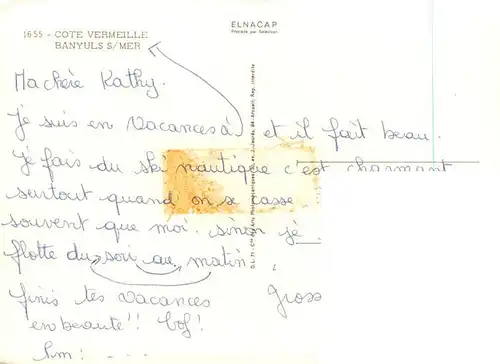 1655 - COTE VERMEILLE
BANYULS S/MER
ELNACAP
Procédé par Sélection
Ma chère Kathy.
Je suis en vacances à et il fait beau.
Je fais du ski nautique c'est charmant
surtout quand on se casse
souvent que moi. sinon je
flotte du soir au matin
finis tes vacances Gross
en beauté!! Bof!